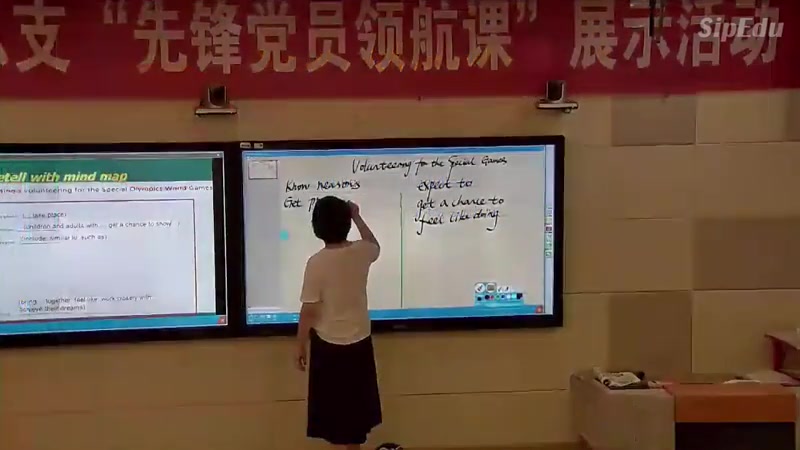 支 “先锋党员领航课” 展示活动
SipEdu
etell with mind map
volunteering for the Special Olympics World Games
place)
children and adults with ... get a chance to show
(include, similar to, such as)
(bring ... together, feel like, work closely with
achieve their dreams)
Volunteering for the Special Games
Know reasons
Get
expect to
get a chance to
feel like doing